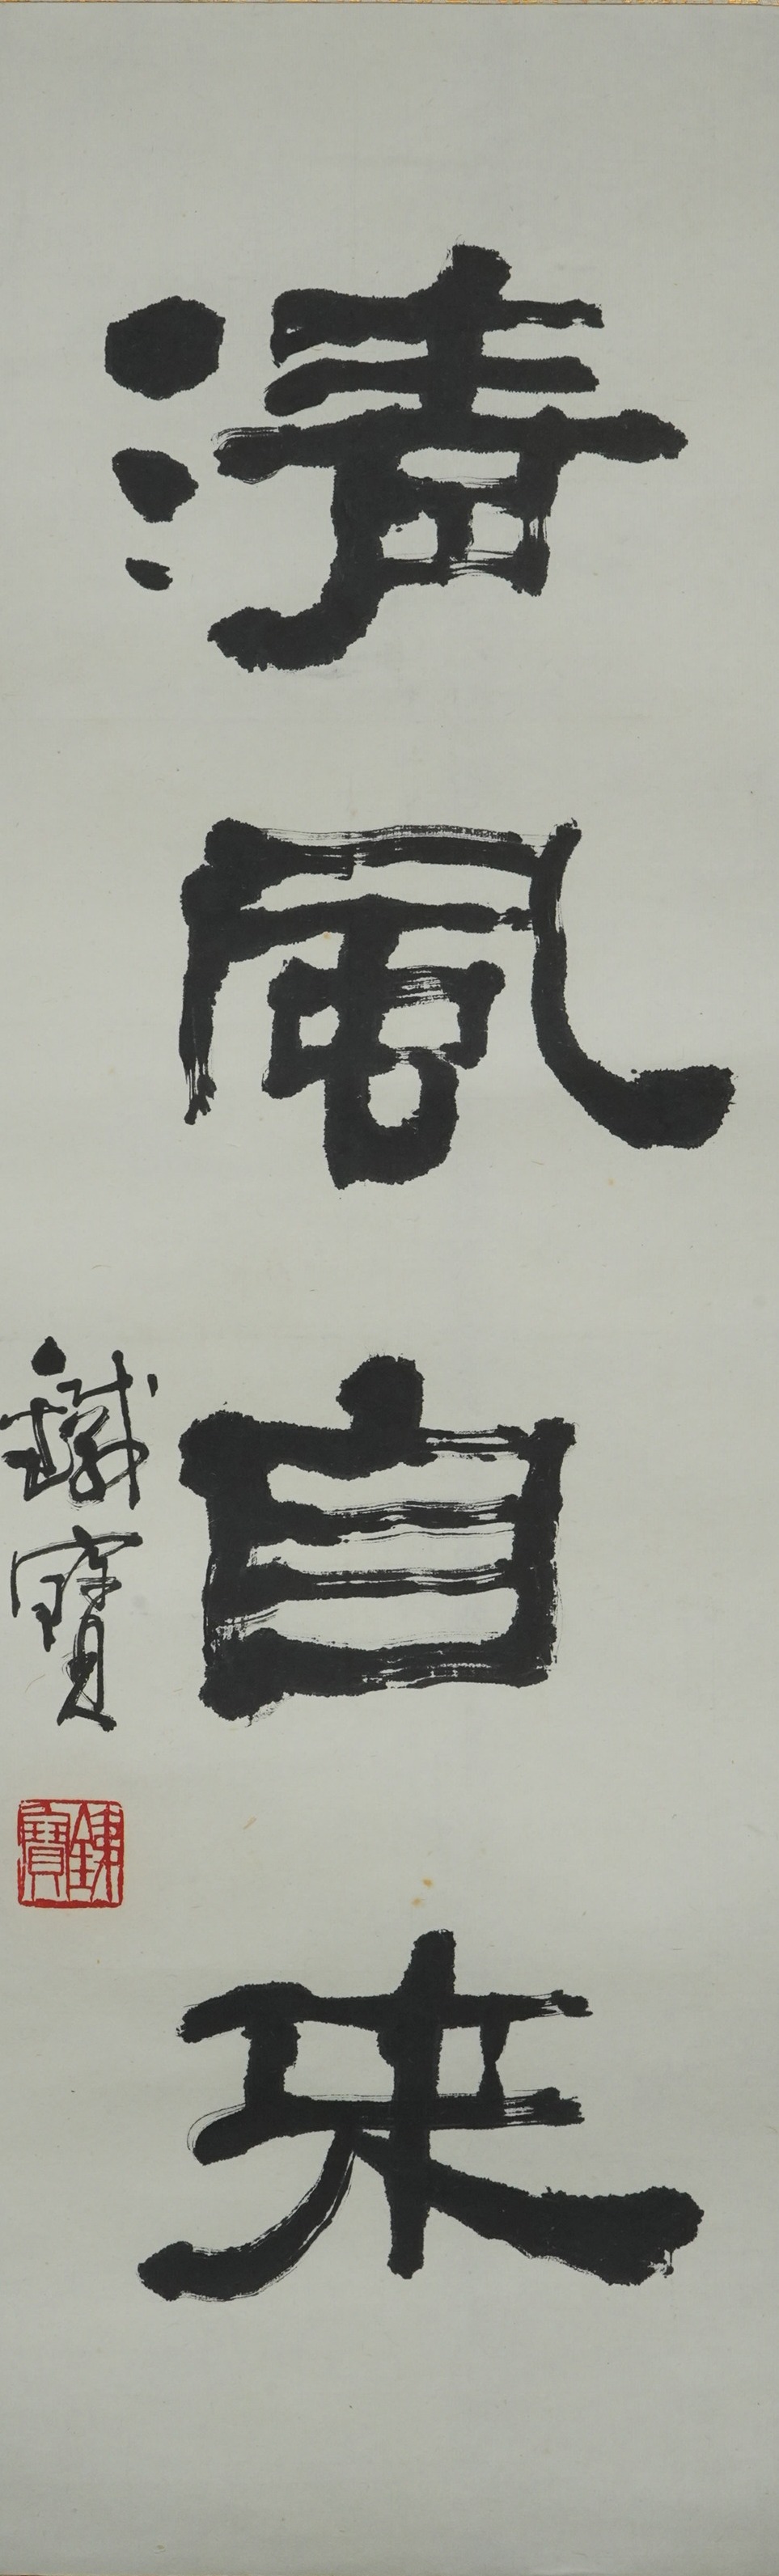 清風自来
鐵寶
鐵寶